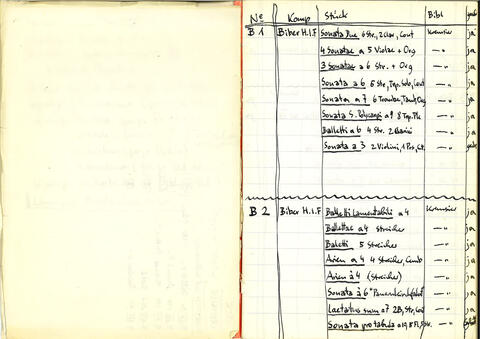 No Komp Stück Bibl
B 1 Biber H.I.F Sonata Due 6 Str, 2 Clar, Cont Kremsier ja
4 Sonatae a 5 Violae + Org —"— ja
3 Sonatae a 6 Str. + Org —"— ja
Sonata a 6 5 Str, Trp. Solo, Cont —"— ja
Sonata a 7 6 Trombe, Tamb, Org —"— ja
Sonata S. Polycarpi a 9 8 Trp. —"— ja
Balletti a 6 4 Str. 2 Clarini —"— ja
Sonata a 3 2 Violini, 1 Pos, Ct. —"—
B 2 Biber H.I.F Balletti Lamentabili a 4 Kremsier ja
Ballettae a 4 Streicher —"— ja
Baletti 5 Streicher —"— ja
Arien a 4 4 Streicher, Cemb —"— ja
Arien à 4 (Streicher) —"— ja
Sonata à 6 —"— ja
Laetatus sum a 7 2B, Str, Cont —"— ja
Sonata pro tabula a 10, 5 Fl, 5 Str. —"—